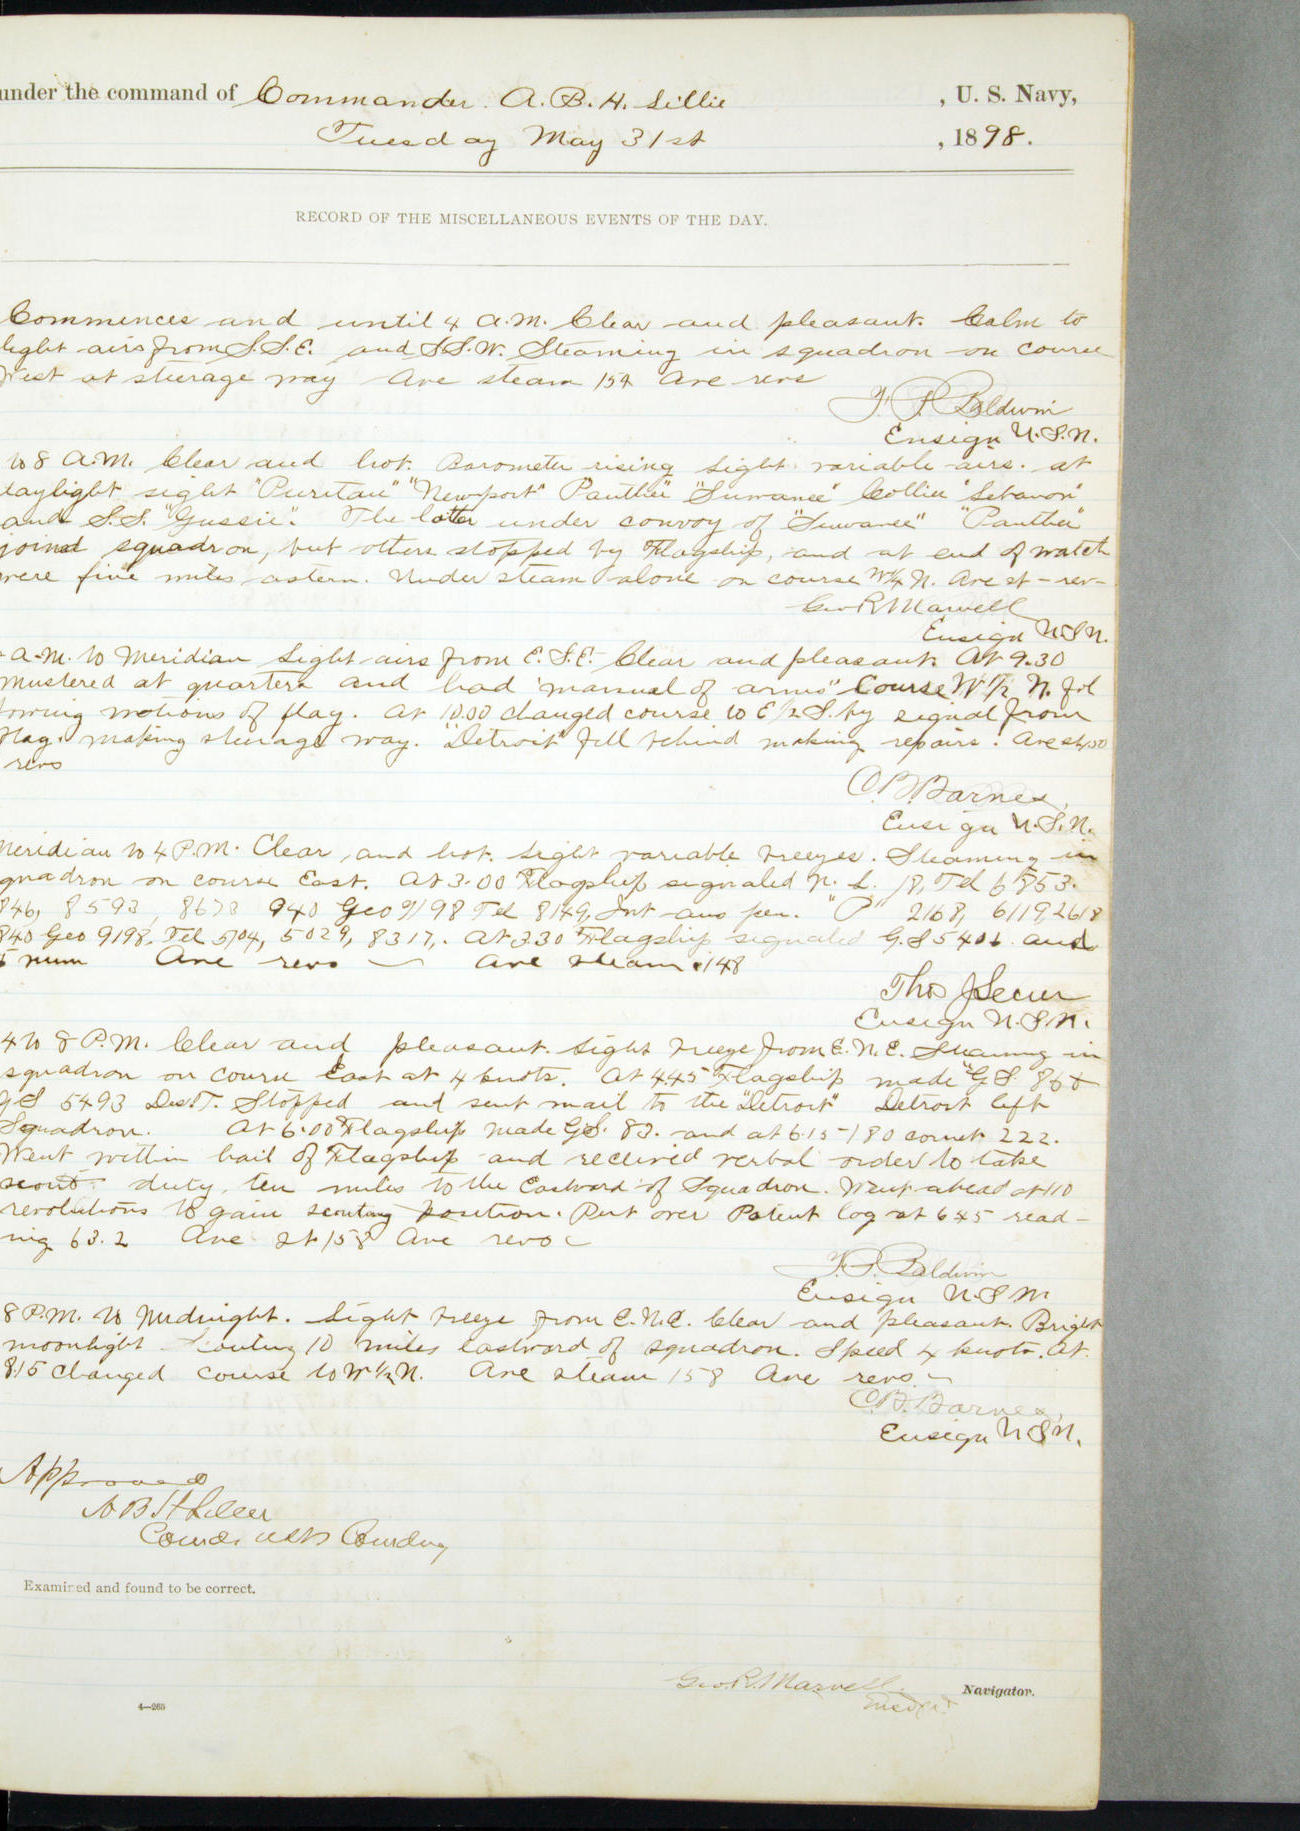 under the command of Commander A. B. H. Lillie , U. S. Navy,
Tuesday May 31st , 1898.
RECORD OF THE MISCELLANEOUS EVENTS OF THE DAY.
Commences and until 4 A.M. Clear and pleasant. Calm to
light airs from S.S.E. and S.S.W. Steaming in squadron on course
West at steerage way Ave steam 154 Ave revs
Baldwin
Ensign U.S.N.
to 8 A.M. Clear and hot. Barometer rising Light variable airs. at
daylight sight "Puritan" "Newport" Panther" "Suwanee" Collier "Lebanon"
and S.S. "Gussie". The latter under convoy of "Suwanee" "Panther"
joined squadron, but others stopped by Flagship, and at end of watch
were five miles astern. Under steam alone on course W¼ N. Ave st - rev -
Geo R Marvell
Ensign U.S.N.
A.M. to Meridian Light airs from E.S.E. Clear and pleasant. At 9.30
mustered at quarters and had "manual of arms" Course W ½ N. fol
lowing motions of flag. At 10.00 changed course to E ½ S. by signal from
Flag. making steerage way. "Detroit" fell behind making repairs. Ave st
revs
C.B. Barnes,
Ensign U.S.N.
Meridian to 4 P.M. Clear, and hot. Light variable breezes. Steaming in
squadron on course East. At 3.00 Flagship signaled N. L. 18, Tel 6853.
846, 8593, 8673 940 Geo 9198 Tel 8149, Int ans pen. "P" 2168, 6119, 2618
840 Geo 9198. Tel 5704, 5029, 8317,. At 3.30 Flagship signaled G.S 5401 and
num Ave revs — Ave steam 148
Thos J Senn
Ensign U.S.N.
4 to 8 P.M. Clear and pleasant. Light breeze from E.N.E. Steaming in
squadron on course East at 4 knots. At 4.45 Flagship made "G S.
G S 5493 Des.T. Stopped and sent mail to the "Detroit" Detroit left
Squadron. At 6.00 Flagship made G.S. 83. and at 6.15 - 180 cornet 222.
Went within hail of Flagship and received verbal order to take
scout duty ten miles to the Eastward of Squadron. Went ahead at 110
revolutions to gain scouting position. Put over Patent log at 6.45 read-
ing 63.2 Ave st 158 Ave revs —
Baldwin
Ensign U.S.N.
8 P.M. to Midnight. Light breeze from E.N.E. Clear and pleasant. Bright
moonlight Scouting 10 miles eastward of squadron. Speed 4 knots. At
8.15 changed course to W ½ N. Ave steam 158 Ave revs. —
C.B. Barnes,
Ensign U.S.N.
Approved
A B H Lillie
Comdr. USN Comdng
Examined and found to be correct.
Geo. R. Marvell. Navigator.
Ensign
4—265